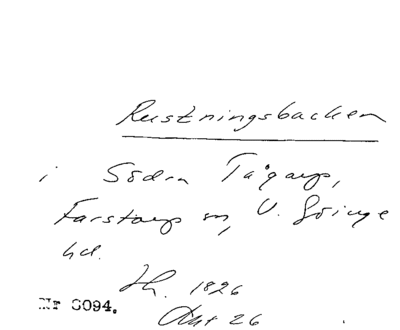 Rustningsbacken
i Södra Tågarp,
Farstorp sn, V. Göinge
hd.
Jh. 1826
Nr 8094.
26